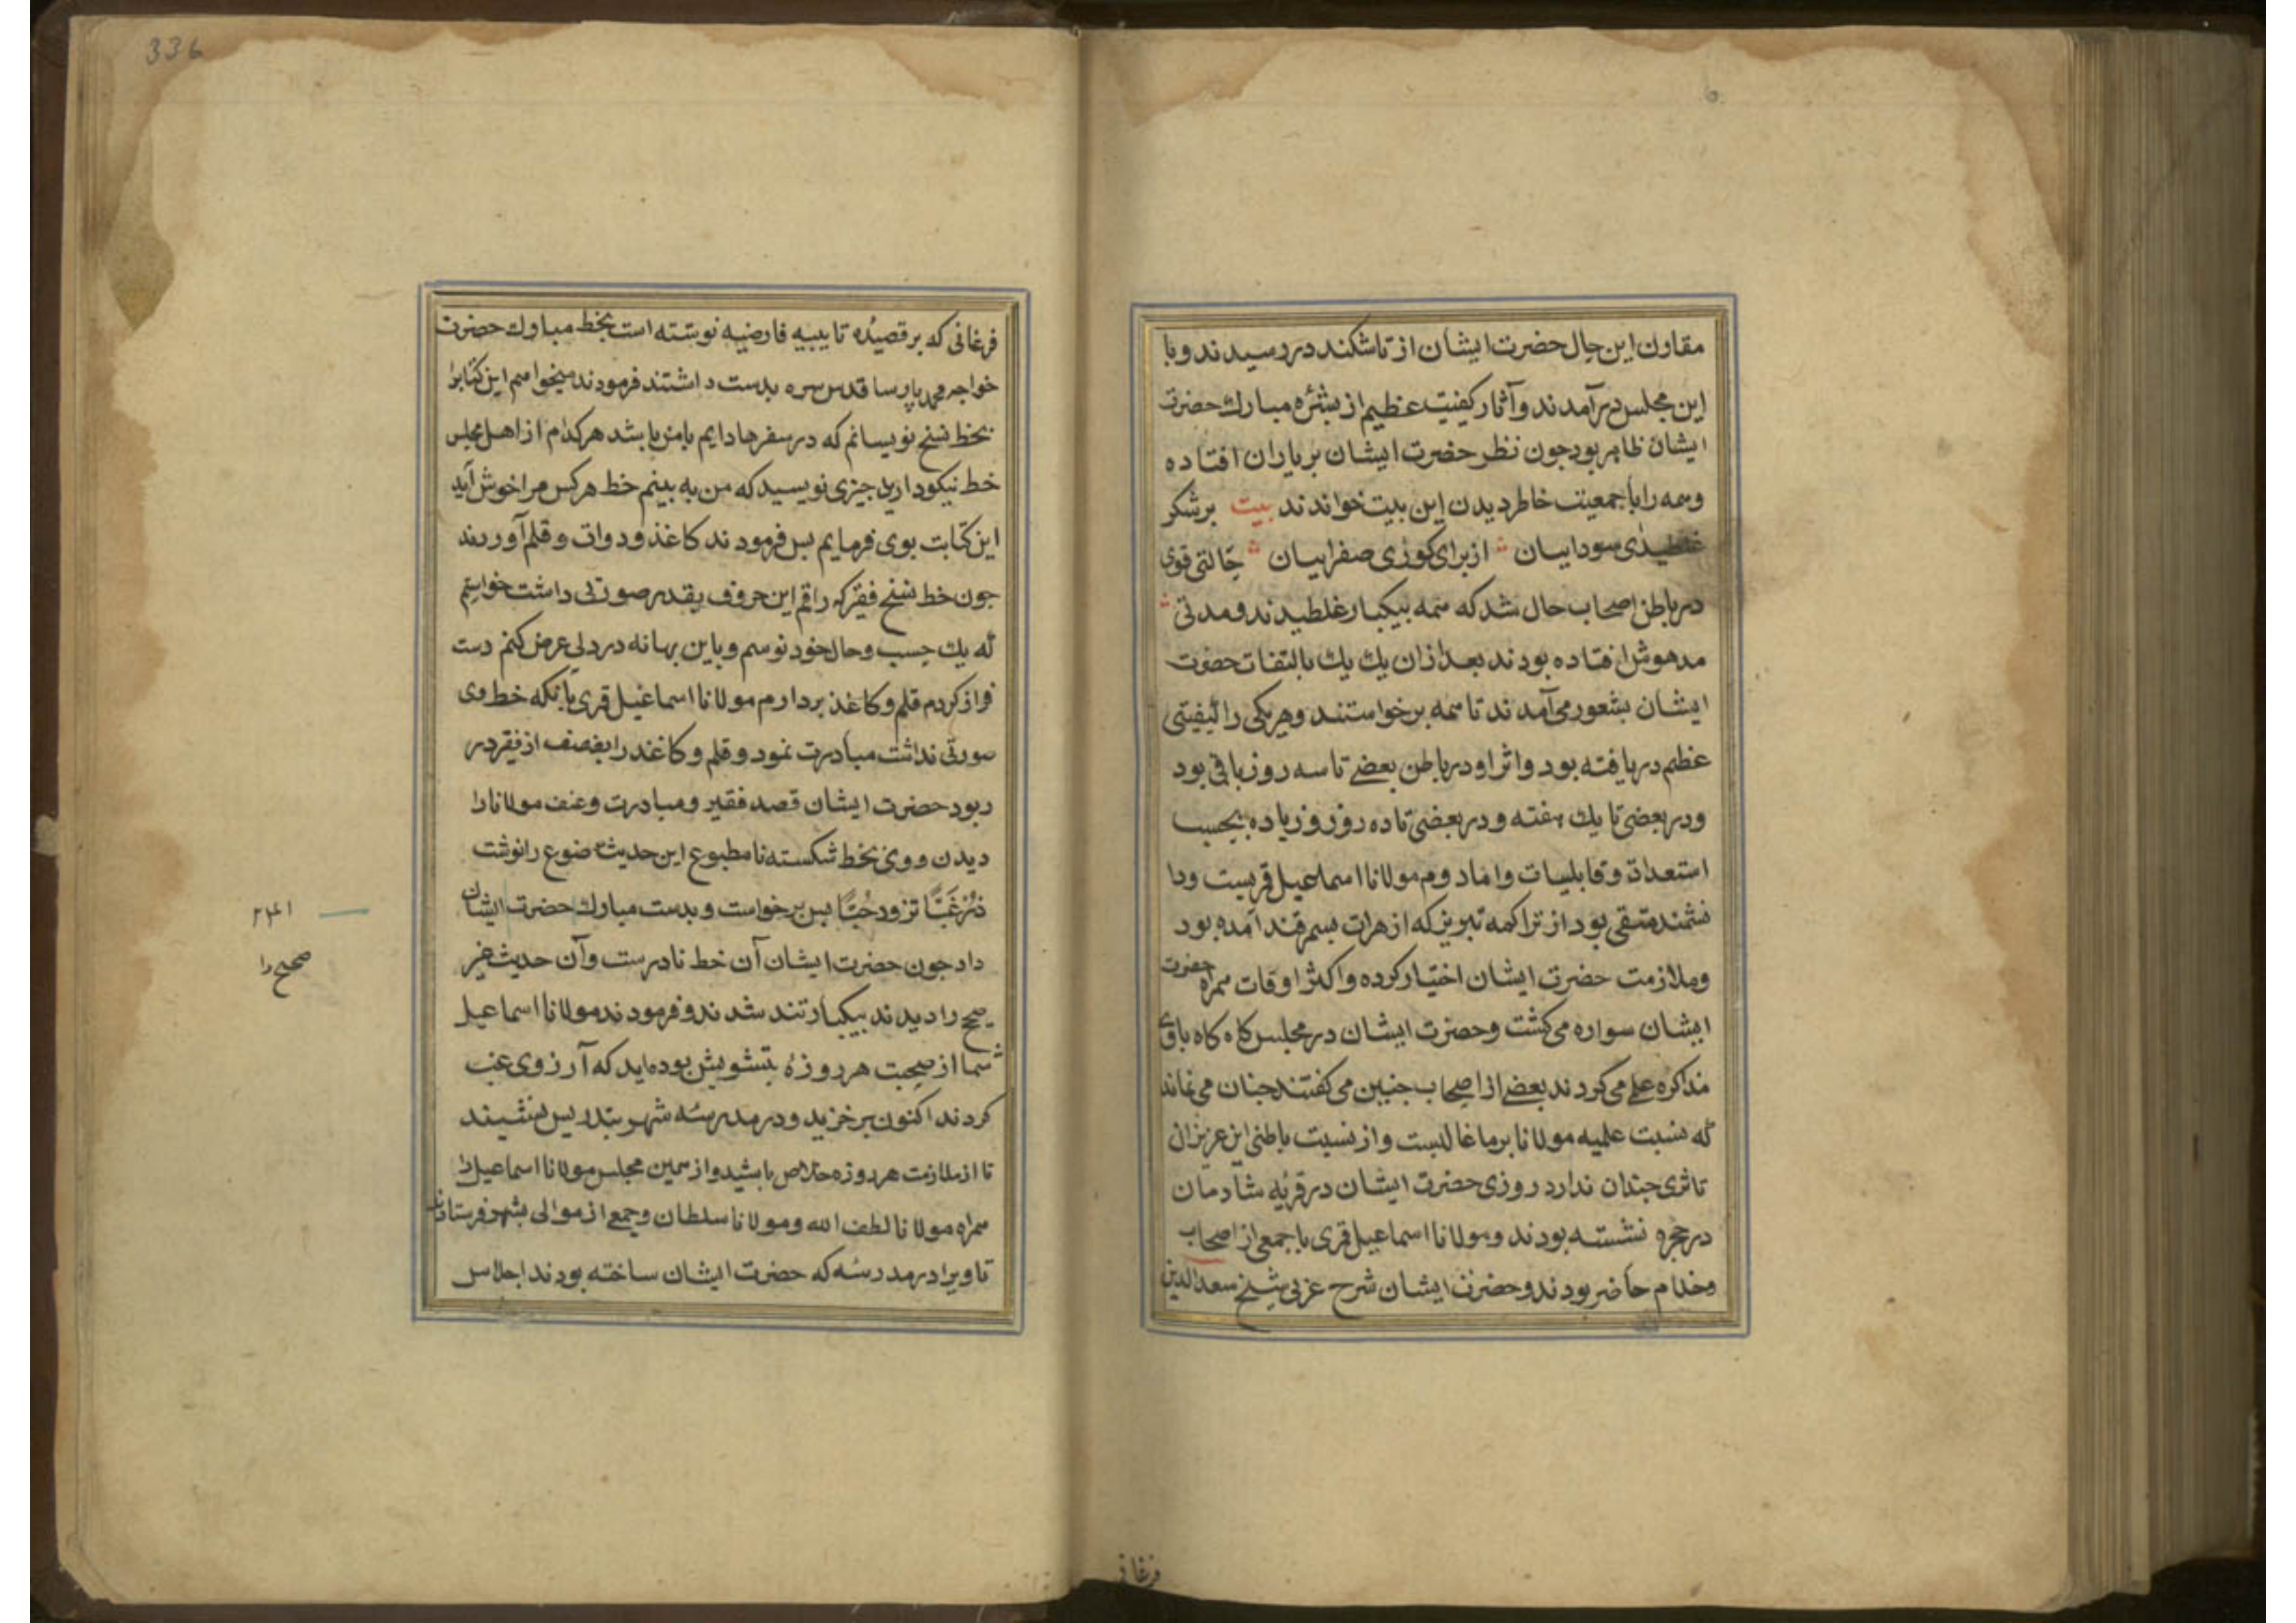 مقارن این حال حضرت ایشان از تاشکند در رسیدند و با
این مجلس در آمدند و آثار کیفیت عظیم از بشئره مبارک حضرت
ایشان ظاهر بود جون نظر حضرت ایشان بر یاران افتاده
و همه را با جمعیت خاطر دیدن این بیت خواندند بیت بر شکر
غلطیدٰی سوداییان از برای کوزی صفراییان حالتی قوی
در باطن اصحاب حال شد که همه بیکبار غلطیدند و مدتی
مدهوش افتاده بودند بعد ازان یک یک بالتفات حضرت
ایشان بشعور می آمدند تا همه برخواستند و هر یکی را کیفیتی
عظیم دریافته بود و اثر او در باطن بعضے تا سه روز باقی بود
و در بعضی تا یک هفته و در بعضی تا ده روز و زیاده بحسب
استعداد و قابلیات و اما دوم مولانا اسماعیل قریست و دا
نشمند متقی بود از تراکمه تبریز که از هرات بسمرقند آمده بود
و ملازمت حضرت ایشان اختیار کرده و اکثر اوقات همراه حضرت
ایشان سواره می کشت و حضرت ایشان در مجلس کاه کاه باوی
مذاکره علم می کردند بعضے از اصحاب جنین می کفتند جنان می نماند
که نسبت علمیه مولانا بر ما غالبست و از نسبت باطنی این عزیزان
تاثری جندان ندارد روزی حضرت ایشان در قریه شادمان
در حجره نشسته بودند و مولانا اسماعیل قری با جمعی از اصحاب
و خدام حاضر بودند و حضرت ایشان شرح عربی شیخ سعد الدین
فرغانی
336
فرغانی که بر قصیده تاییه فارضیه نوشته است بخط مبارک حضرت
خواجه محمد پارسا قدس سره بدست داشتند فرمودند میخواهم این کتابرا
بخط نسخ نویسانم که در سفرها دایم با من باشد هر کدام از اهل مجلس
خط نیکو دارید جیزی نویسید که من به بینم خط هر کس مرا خوش آید
این کتابت بوی فرمایم پس فرمودند کاغذ و دوات و قلم آوردند
جون خط نسخ فقیر که راقم این حروف یقدر صورتی داشت خواستم
که یک حسب و حال خود نوسم و باین بهانه درد دلی عرض کنم دست
فراز کردم قلم و کاغذ بردارم مولانا اسماعیل قری با نکه خط وی
صورتی نداشت مبادرت نمود و قلم و کاغذ را از فقیر در
ربود حضرت ایشان قصد فقیر و مبادرت و عنف مولانا را
دیدن و وی بخط شکسته نا مطبوع این حدیث ضوع را نوشت
زُرْغَبًّا تزودحُبًّا پس برخواست و بدست مبارک حضرت ایشان
داد جون حضرت ایشان آن خط نادرست و آن حدیث غیر
صحیح را دیدند بیکبار تند شدند و فرمودند مولانا اسماعیل
شما از صحبت هر روزهٔ بتشویش بوده اید که آرزوی غب
کردند اکنون برخزید و در مدرسهٔ شهر بتدریس بنشیند
تا از ملازمت هر روزه خلاص باشید و از همین مجلس مولانا اسماعیل را
همراه مولانا لطف الله و مولانا سلطان و جمعے از موالی بشهر فرستادند
تا ویرا در مدرسه که حضرت ایشان ساخته بودند اجلاس
صحیح را